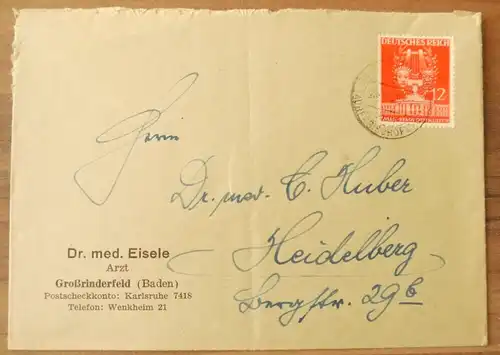 DEUTSCHES REICH
12
Herrn
Dr. med. C. Huber
Heidelberg
Bergstr. 29b
Dr. med. Eisele
Arzt
Großrinderfeld (Baden)
Postscheckkonto: Karlsruhe 7418
Telefon: Wenkheim 21